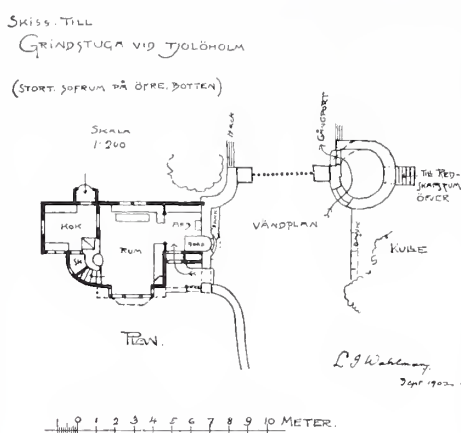 SKISS. TILL
GRINDSTUGA VID TJOLÖHOLM
(STORT. SOFRUM PÅ ÖFRE. BOTTEN)
SKALA
1:200
HÄCK
GÅNGPORT
TILL RED-
SKAPSRUM
ÖFVER
KÖK
RUM
SK
BORD
VÄNDPLAN
KULLE
PLAN.
L I Wahlman.
Sept 1902.
0 1 2 3 4 5 6 7 8 9 10 METER.